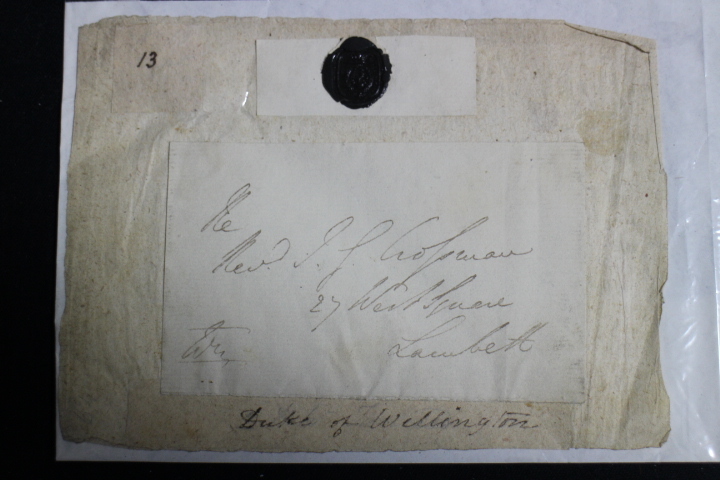 13
The
Revd. J. G. Crossman
27 West Square
Lambeth
Duke of Wellington